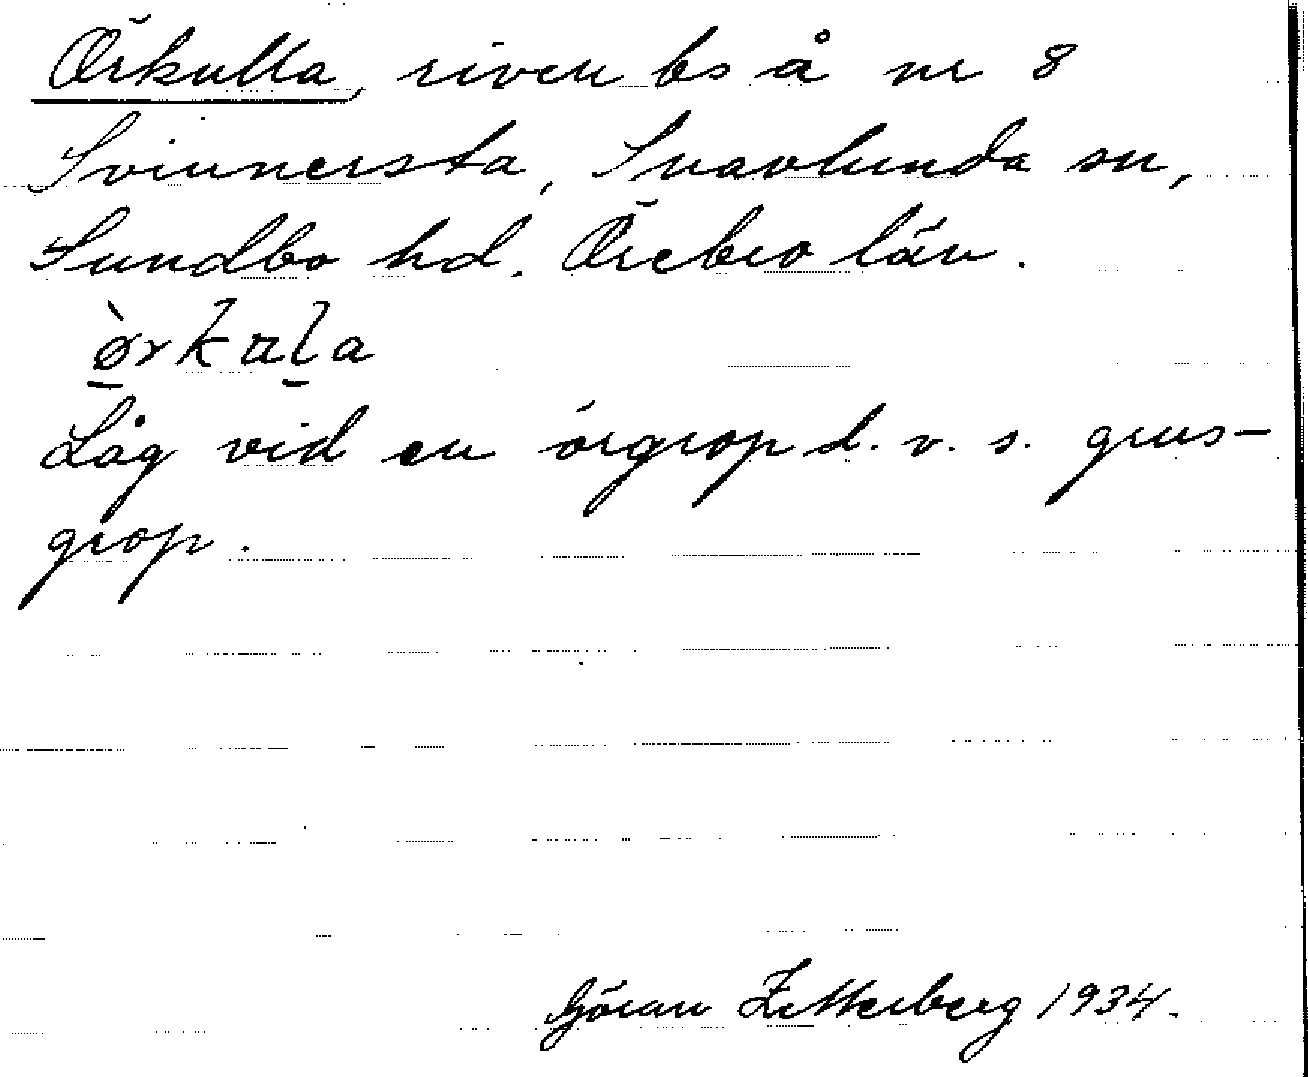 Örkulla, riven bs å nr 8
Svinnersta, Snavlunda sn,
Sundbo hd. Örebro län.
ø̀rkala
Låg vid en örgrop d. v. s. grus-
grop.
Göran Zetterberg 1934.